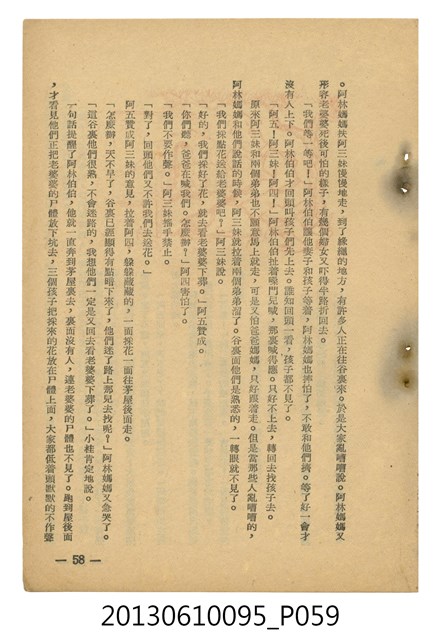 。阿林媽媽扶阿三妹慢慢地走，到了綠繩的地方，有許多人正在往谷裏來。於是大家亂嘈嘈說。阿林媽媽又
形容老婆婆死後可怕的樣子，有幾個婦女又吓得半路折回去。
「我們等一等吧！」阿林伯伯讓他妻子和孩子等着，阿林媽媽也摔怕了，不敢和他們擠。等了好一會才
沒有人上下。阿林伯伯才回頭叫孩子們先上去。誰知回頭一看，孩子都不見了。
「阿五！阿三妹！阿四！」阿林伯伯扯着喉門兒喊，那裏喊得應。只好不上去，轉回去找孩子去。
原來阿三妹和兩個弟弟也不願意馬上就走，可是又怕爸爸媽媽，只好跟着走。但是當那些人亂嘈的，
阿林媽媽和他們說話的時候，阿三妹就拉着兩個弟弟溜了。谷裏面他們是熟悉的，一轉眼就不見了。
「我們採點花送給老婆婆吧！」阿三妹說。
「好的，我們採好了花，就去看老婆婆下葬。」阿五贊成。
「你們聽，爸爸在喊我們。怎麼辦？」阿四害怕了。
「我們不要作聲。」阿三妹搖手禁止。
「對了，回頭他們又不許我們去送花。」
阿五贊成阿三妹的意見，拉着阿四，躲躲藏藏的，一面採花一面往茅屋後面走。
「怎麼辦，天不早了，谷裏已經顯得有點暗下來了，他們迷了路上那兒去找呢？」阿林媽媽又急哭了。
「這谷裏他們很熟，不會迷路的，我想他們一定是又回去看老婆婆下葬了。」小桂肯定地說。
一句話提醒了阿林伯伯，他就一直弄到茅屋裏去，裏面沒有人，連老婆婆的尸體也不見了。跑到屋後面
，才看見他們正把老婆婆的尸體放下坑去，三個孩子把採來的花放在尸體上面，大家都低着頭默默的不作聲
— 58 —
20130610095_P059